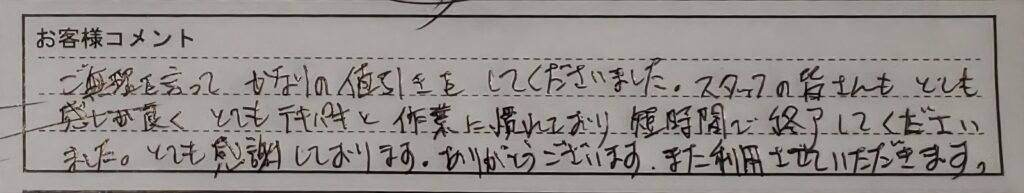 お客様コメント
ご無理を言って かなりの値引きを してくださいました。スタッフの皆さんも とても
感じが良く とても テキパキと 作業に慣れており 短時間で 終了してください
ました。とても感謝しております。ありがとうございます。また利用させていただきます。